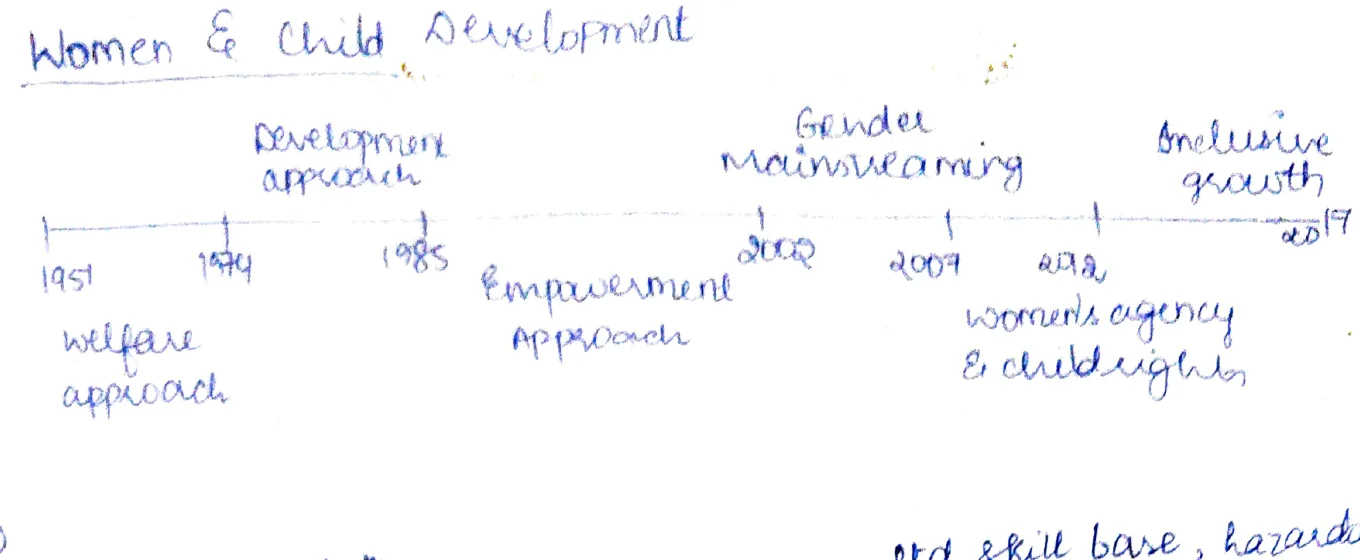 Women & Child Development
Development
approach
Gender
mainstreaming
Inclusive
growth
1951 1974 1985 2002 2007 2012 2017
Welfare
approach
Empowerment
Approach
Women's agency
& child rights
skill base,